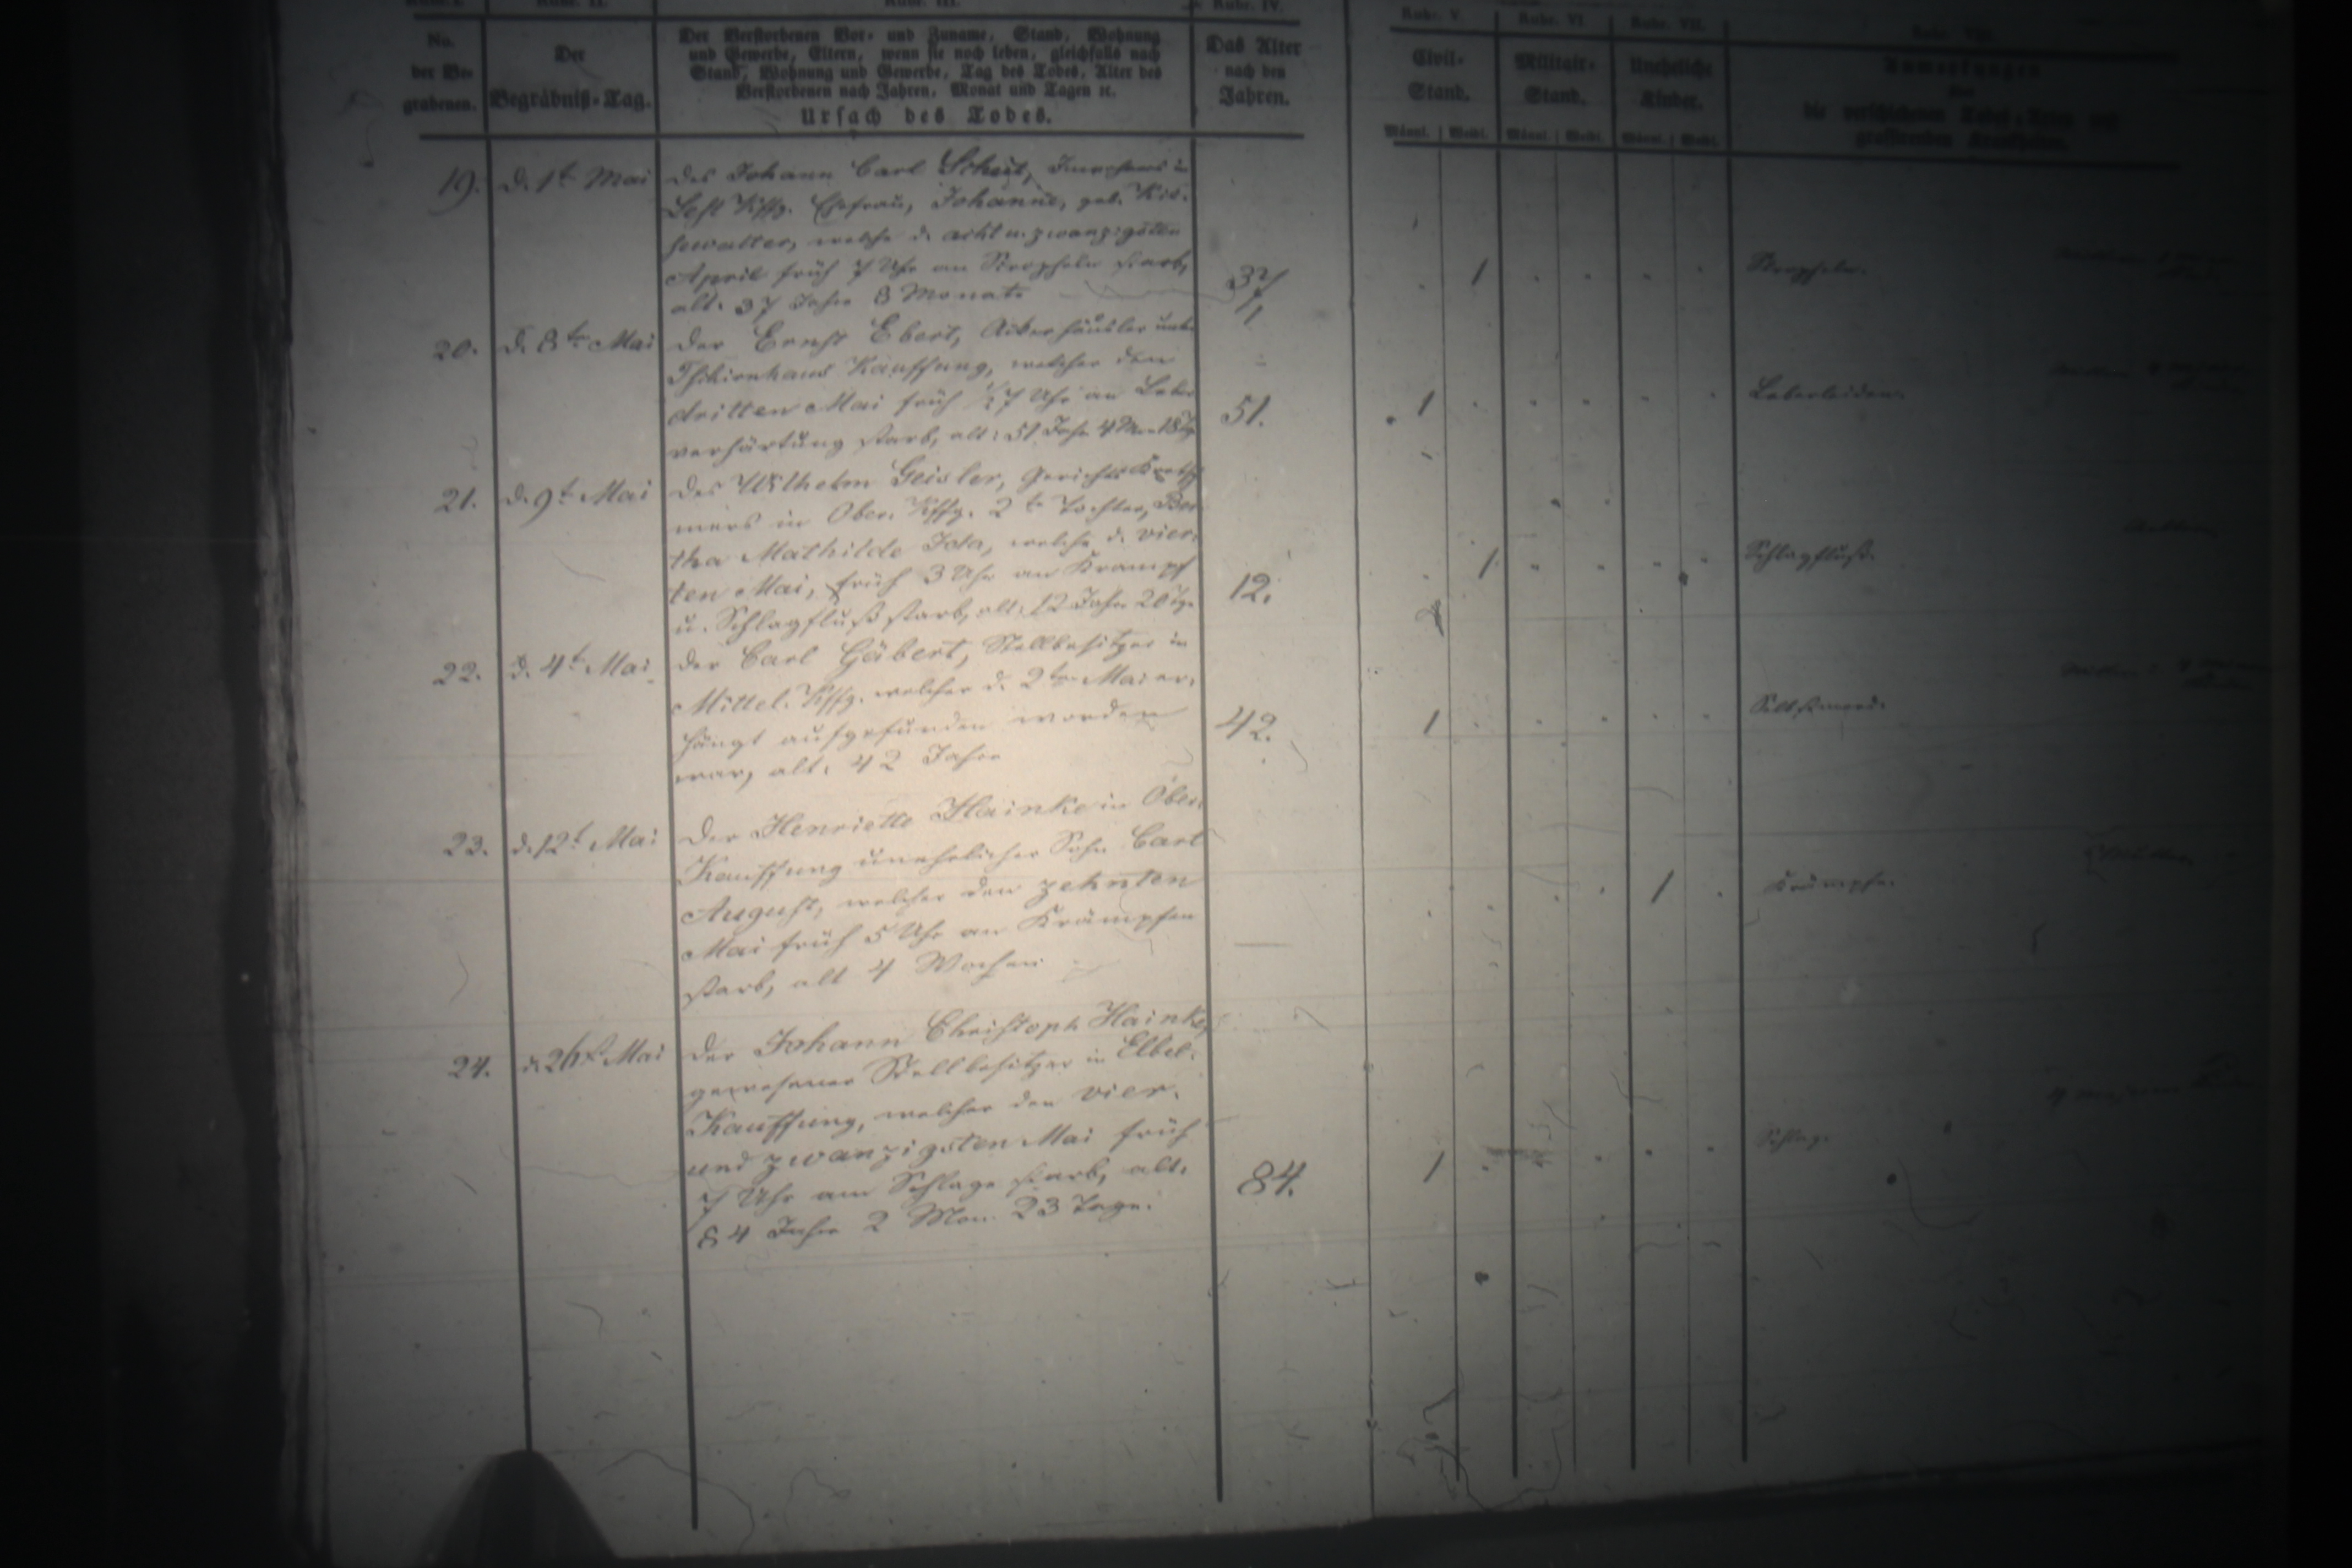 Rubr. IV.
Rubr. V.
Rubr. VI
Rubr. VII.
No.
der Be-
grabenen.
Der
Begräbniß-Tag.
Der Verstorbenen Vor- und Zuname, Stand, Wohnung
und Gewerbe, Eltern, wenn sie noch leben, gleichfalls nach
Stand, Wohnung und Gewerbe, Tag des Todes, Alter des
Verstorbenen nach Jahren, Monat und Tagen ec.
Ursach des Todes.
Das Alter
nach den
Jahren.
Civil-
Stand.
Militair-
Stand.
Uneheliche
Kinder.
Anmerkungen
die verschiedenen
grassirenden Krankheiten.
Männl. Weibl. Männl. Weibl. Männl. Weibl.
19. d. 1t Mai
des Johann Carl Inwohners in
Kffg. Ehefrau, Johanne, geb.
welche d. acht u. zwanzigsten
April früh 7 Uhr an starb,
alt. 37 Jahre 8 Monate
37
1
20. d. 8ten Mai
der Ernst Ebert, Ackerhäusler
Tschirnhaus Kauffung, welcher den
dritten Mai früh 1/2 7 Uhr an Leber
verhärtung starb, alt: 51 Jahr 4 Mon 18 Tg
51.
1
Leberleiden.
21. d. 9t Mai
des Wilhelm Geisler, Gerichts Kretsch
mers in Ober. Kffg. 2te Tochter, Ber
tha Mathilde Ida, welche d. vier-
ten Mai, früh 3 Uhr an Krampf
u. Schlagfluß starb, alt: 12 Jahre 20 Tge
12.
1
Schlagfluß.
22. d. 4t Mai
der Carl Gäbert, Stellbesitzer in
Mittel. Kffg. welcher d. 2ten Mai er-
hängt aufgefunden worden
war, alt. 42 Jahre
42.
1
Selbstmord.
23. d. 12t Mai
Der Henriette Hainke in Ober-
Kauffung unehelicher Sohn Carl
August, welcher den zehnten
Mai früh 5 Uhr an Krämpfen
starb, alt 4 Wochen
1
Krämpfe.
24. d. 26t Mai
der Johann Christoph Hainke,
gewesener Stellbesitzer in Elbel-
Kauffung, welcher den vier-
und zwanzigsten Mai früh
7 Uhr am Schlage starb, alt.
84 Jahre 2 Mon. 23 Tage.
84.
1
Schlag.